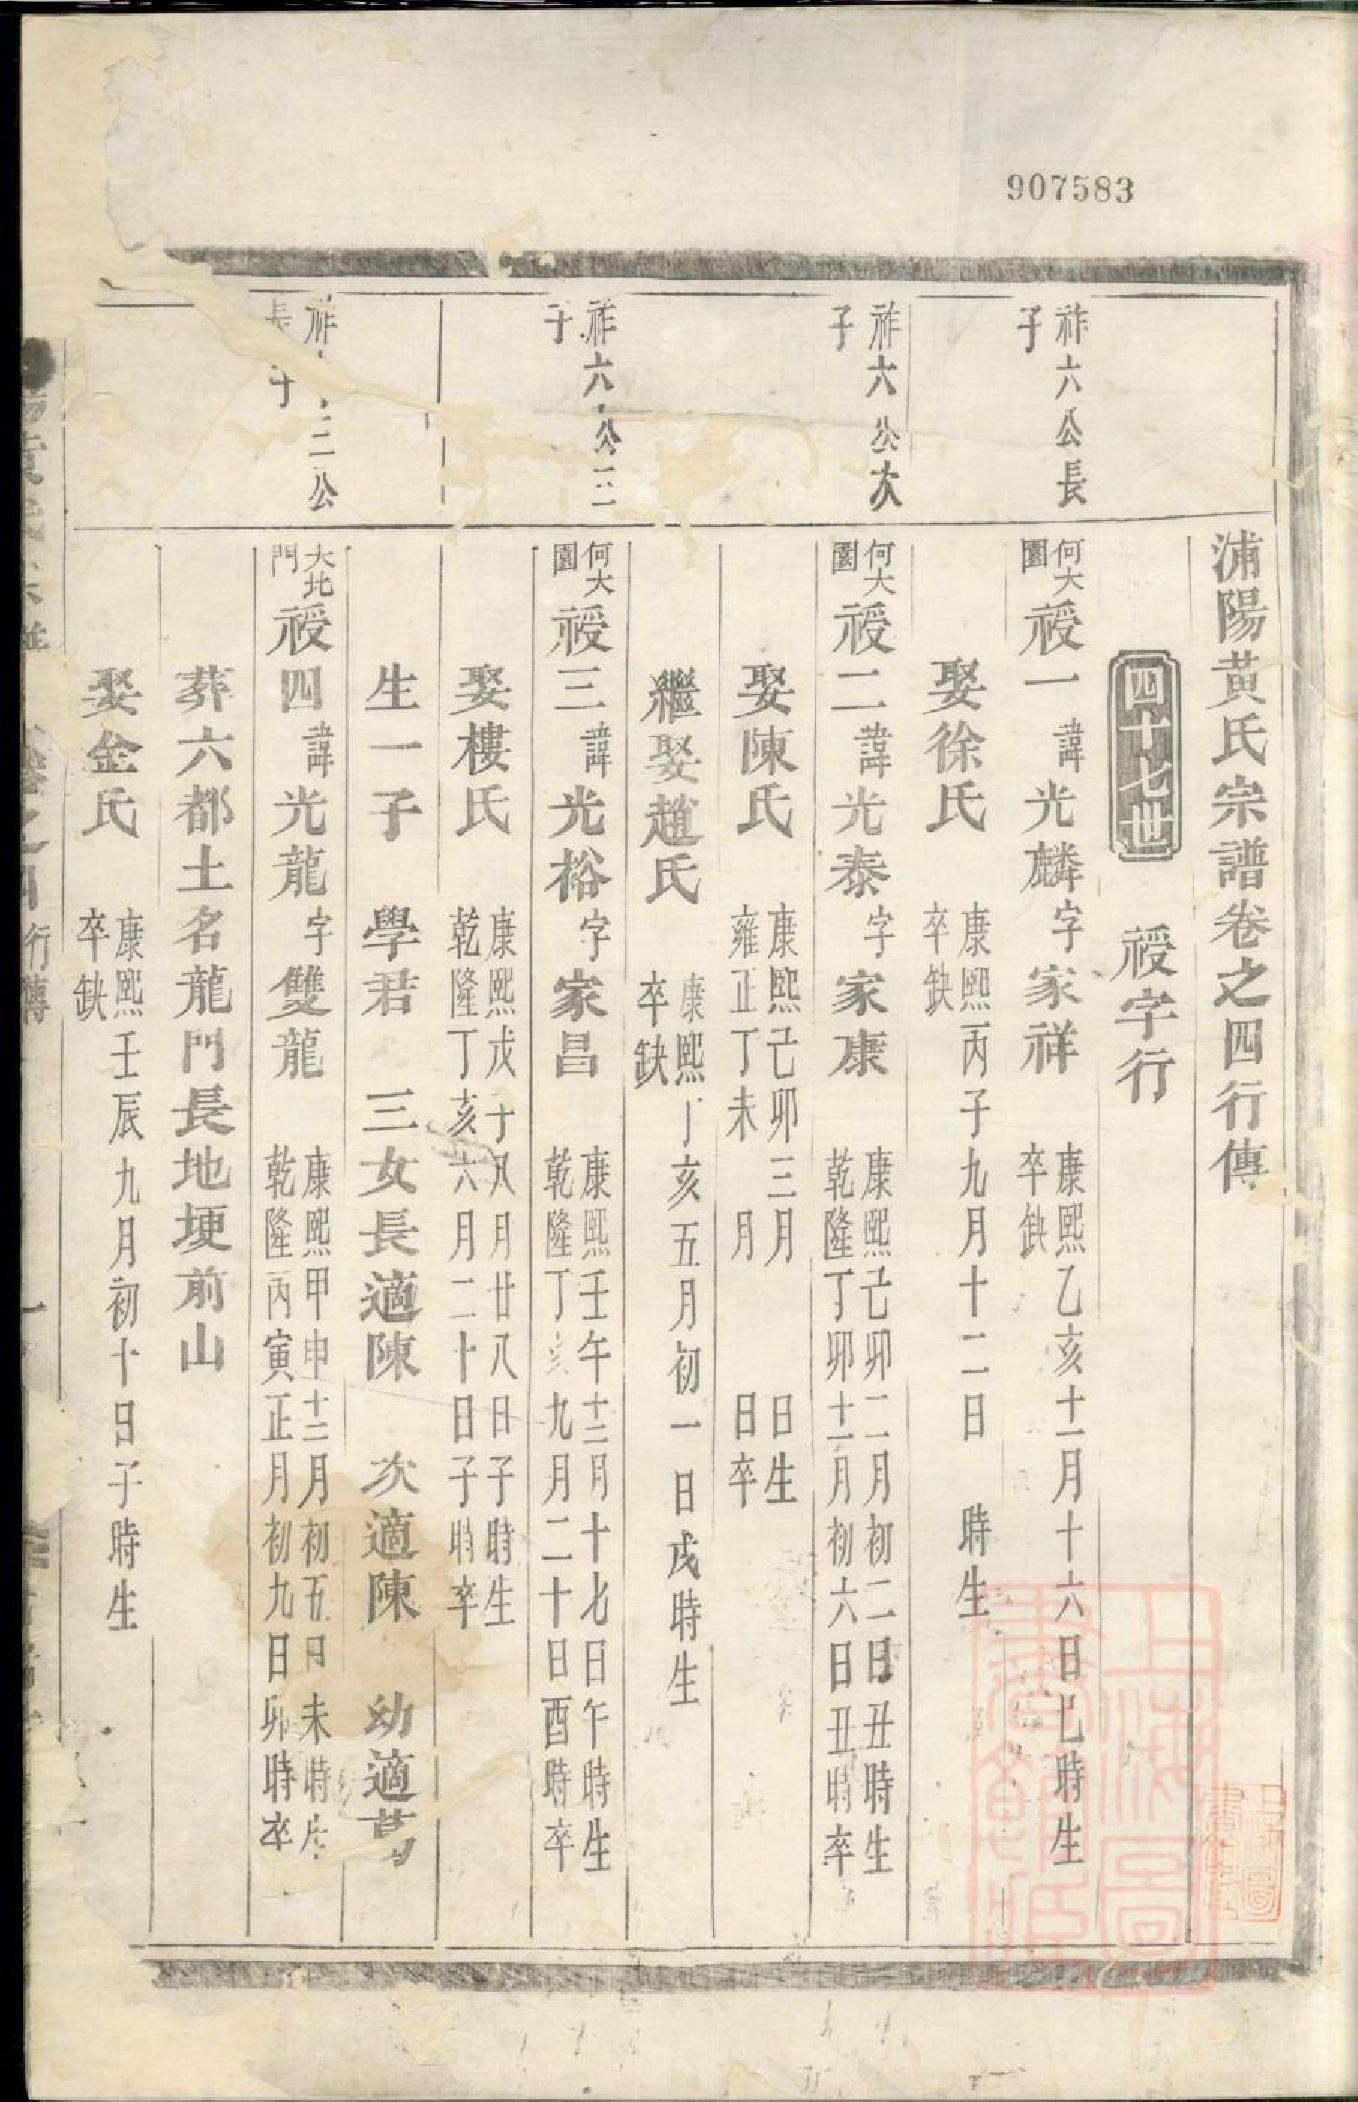 907583
浦陽黃氏宗譜卷之四行傳
四十七世
祾字行
祚六公長
子
何大
園
祾一諱光麟字家祥
康熙乙亥十一月十六日巳時生
卒缺
娶徐氏
康熙丙子九月十二日 時生
卒缺
祚六公次
子
何大
園
祾二諱光泰字家康
康熙己卯二月初二日丑時生
乾隆丁卯十一月初六日丑時卒
娶陳氏
康熙己卯三月 日生
雍正丁未 月 日卒
繼娶趙氏
康熙丁亥五月初一日戌時生
卒缺
祚六公三
子
何大
園
祾三諱光裕字家昌
康熙壬午十二月十七日午時生
乾隆丁亥九月二十日酉時卒
娶樓氏
康熙戊子八月廿八日子時生
乾隆丁亥六月二十日子時卒
生一子 學君 三女長適陳 次適陳 幼適葛
祚 二公
長子
大地
門
祾四諱光龍字雙龍
康熙甲申十二月初五日未時生
乾隆丙寅正月初九日卯時卒
葬六都土名龍門長地埂前山
娶金氏
康熙壬辰九月初十日子時生
卒缺
上海圖書館藏
上海圖書館藏